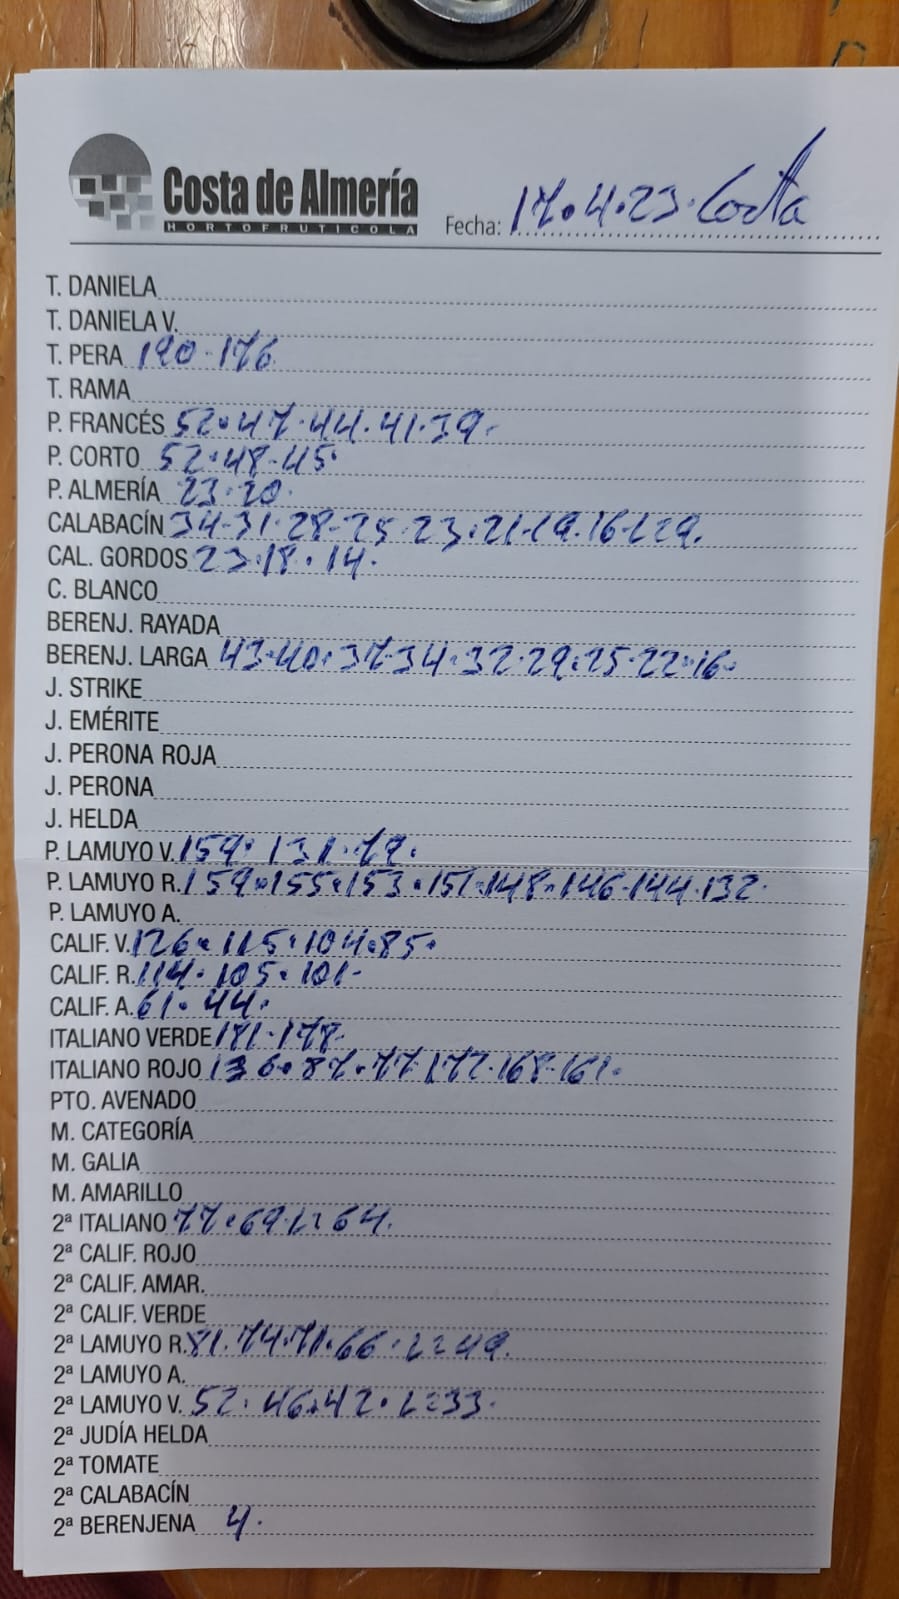 Costa de Almería
HORTOFRUTICOLA
Fecha: 17.4.23. Costa
T. DANIELA
T. DANIELA V.
T. PERA 190-176
T. RAMA
P. FRANCÉS 52.47.44.41.39.
P. CORTO 52.48-45.
P. ALMERÍA 23.20.
CALABACÍN 34-31.28-25.23.21-19.16-L=9.
CAL. GORDOS 23.18.14.
C. BLANCO
BERENJ. RAYADA
BERENJ. LARGA 43.40.37-34.32.29.25.22.16.
J. STRIKE
J. EMÉRITE
J. PERONA ROJA
J. PERONA
J. HELDA
P. LAMUYO V. 159.131.79.
P. LAMUYO R. 159.155.153.151.148.146-144.132.
P. LAMUYO A.
CALIF. V. 126.115.104.85.
CALIF. R. 114.105.101-
CALIF. A. 61.44.
ITALIANO VERDE 181-178.
ITALIANO ROJO 136.87.77.172.168-161.
PTO. AVENADO
M. CATEGORÍA
M. GALIA
M. AMARILLO
2ª ITALIANO 77.69.L=64.
2ª CALIF. ROJO
2ª CALIF. AMAR.
2ª CALIF. VERDE
2ª LAMUYO R. 81.74.71.66.L=49.
2ª LAMUYO A.
2ª LAMUYO V. 52.46.42.L=33.
2ª JUDÍA HELDA
2ª TOMATE
2ª CALABACÍN
2ª BERENJENA 4.